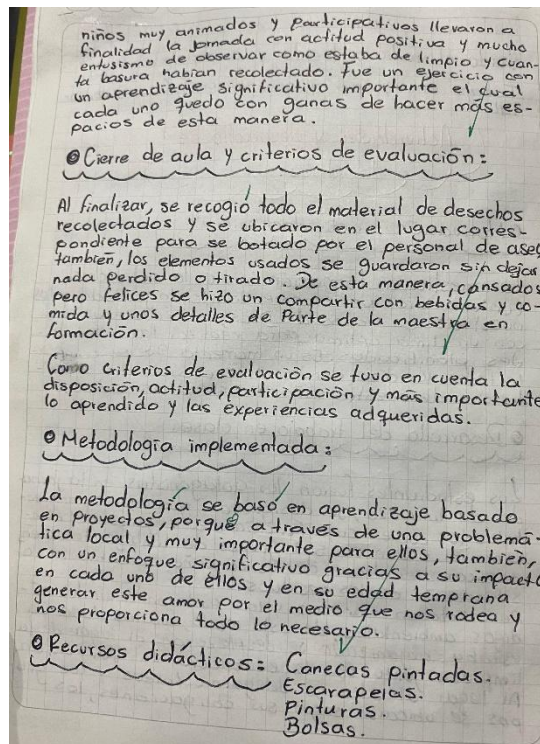 niños muy animados y participativos llevaron a
finalidad la jornada con actitud positiva y mucho
entusismo de observar como estaba de limpio y cuan-
ta basura habian recolectado. Fue un ejercicio con
un aprendizaje significativo importante el cual
cada uno quedo con ganas de hacer más es-
pacios de esta manera.
Cierre de aula y criterios de evaluación:
Al finalizar, se recogió todo el material de desechos
recolectados y se ubicaron en el lugar corres-
pondiente para se botado por el personal de aseo
también, los elementos usados se guardaron sin dejar
nada perdido o tirado. De esta manera, cansados
pero felices se hizo un compartir con bebidas y co-
mida y unos detalles de Parte de la maestra en
formación.
Como criterios de evaluación se tuvo en cuenta la
disposición, actitud, participación y más importante
lo aprendido y las experiencias adqueridas.
Metodologia implementada:
La metodología se basó en aprendizaje basado
en proyectos, porque a través de una problemá-
tica local y muy importante para ellos, tambien,
con un enfoque significativo gracias a su impacto
en cada uno de ellos y en su edad temprana
generar este amor por el medio que nos rodea y
nos proporciona todo lo necesario.
Recursos didácticos: Canecas pintadas.
Escarapelas.
Pinturas.
Bolsas.